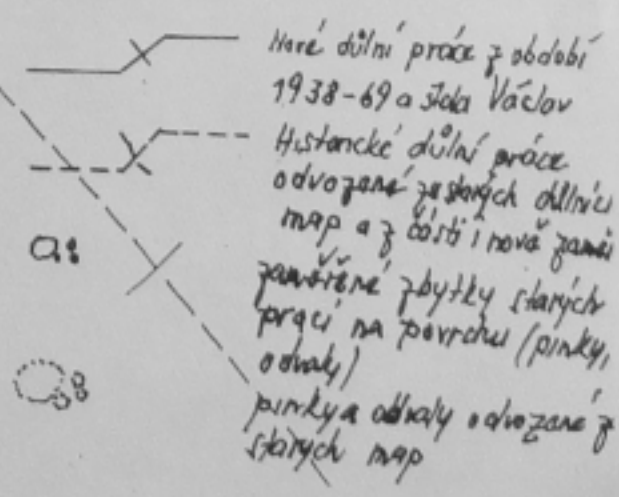 Nové důlní práce z období
1938-69 a štola Václav
Historické důlní práce
odvozané ze starých důlních
map a z části i nově zaměř
zaměřené zbytky starých
prací na povrchu (pinky,
odvaly)
pinky a odvaly odvozané z
starých map